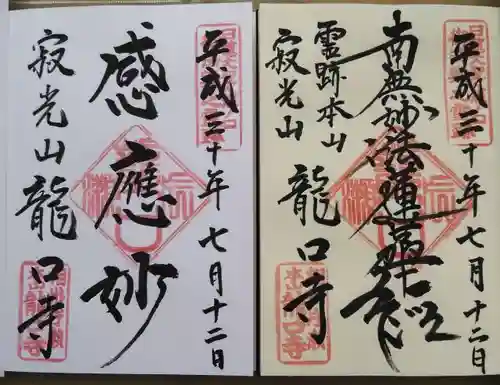 平成三十年七月十二日
感應妙
寂光山龍口寺
平成三十年七月十二日
南無妙法蓮華経
霊跡本山
寂光山龍口寺